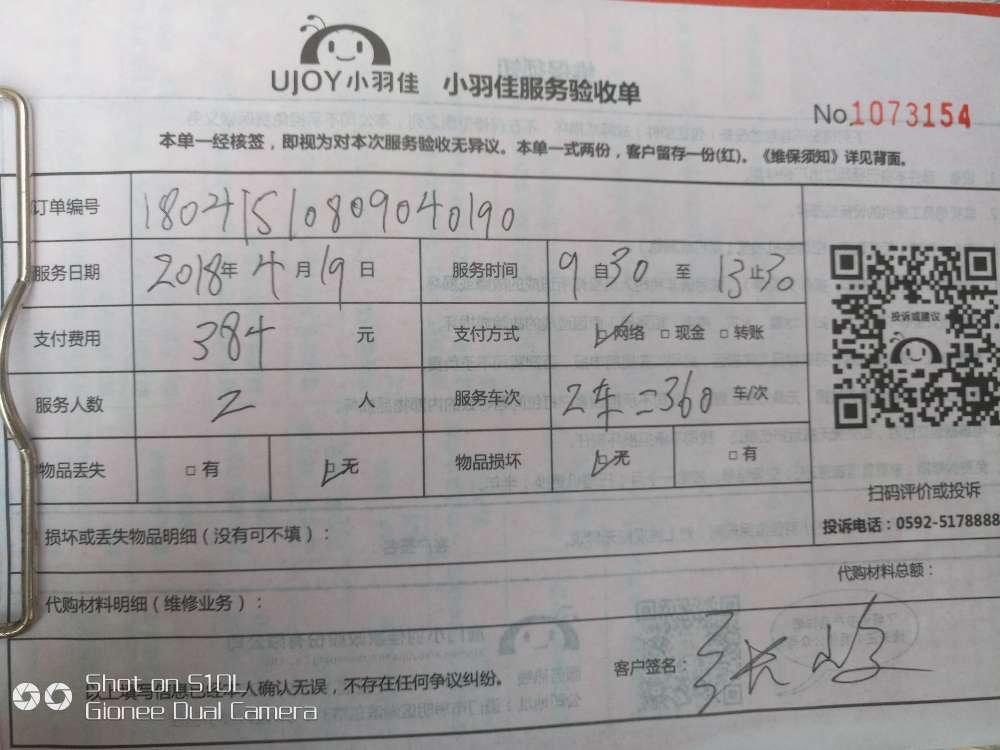 UJOY小羽佳 小羽佳服务验收单
No.1073154
本单一经核签，即视为对本次服务验收无异议。本单一式两份，客户留存一份(红)。《维保须知》详见背面。
订单编号 180415510809040190
服务日期 2018年4月19日 服务时间 9自30至13止30
支付费用 384 元 支付方式 网络 □现金 □转账
投诉或建议
服务人数 2 人 服务车次 2车=360 车/次
物品丢失 □有 无 物品损坏 无 □有
扫码评价或投诉
投诉电话：0592-5178888
损坏或丢失物品明细（没有可不填）：
代购材料总额：
代购材料明细（维修业务）：
客户签名：
以上填写信息已经本人确认无误，不存在任何争议纠纷。
Shot on S10L
Gionee Dual Camera